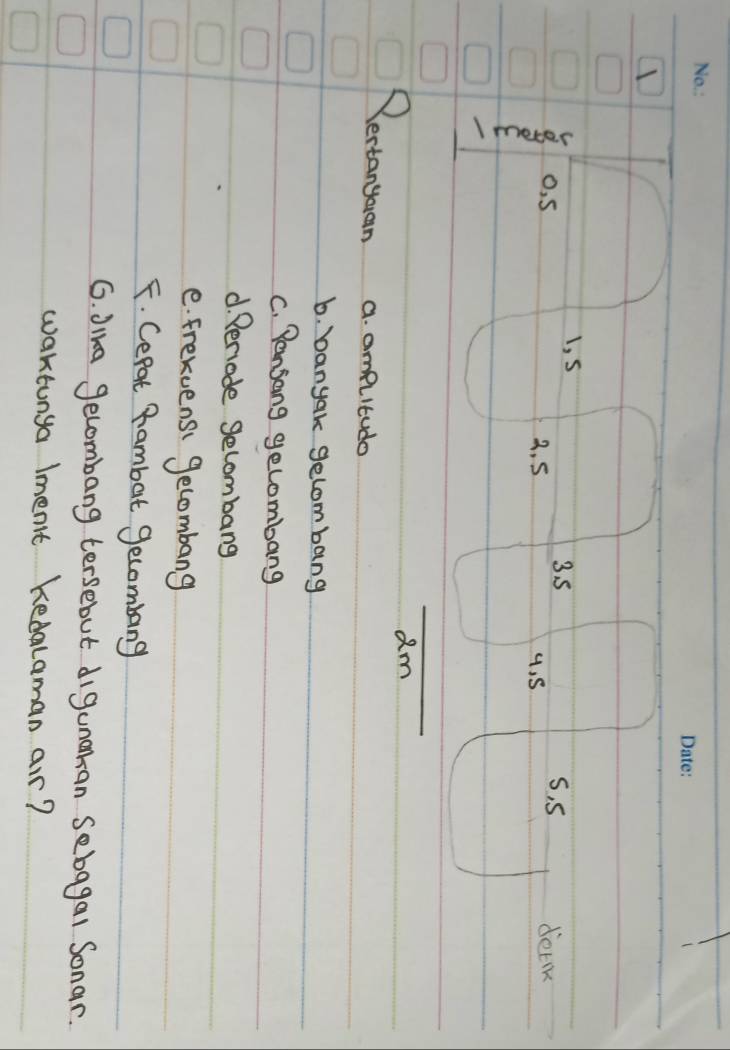 No.: Date:
1
1 meter
0,5 1,5 2,5 3,5 4,5 5,5 detik
2m
Pertanyaan a. amplitudo
b. banyak gelombang
c. Panjang gelombang
d. Periode gelombang
e. frekuensi gelombang
F. Cepat Rambat gelombang
G. Jika gelombang tersebut digunakan sebagai Sonar.
waktunya 1menit kedalaman air?